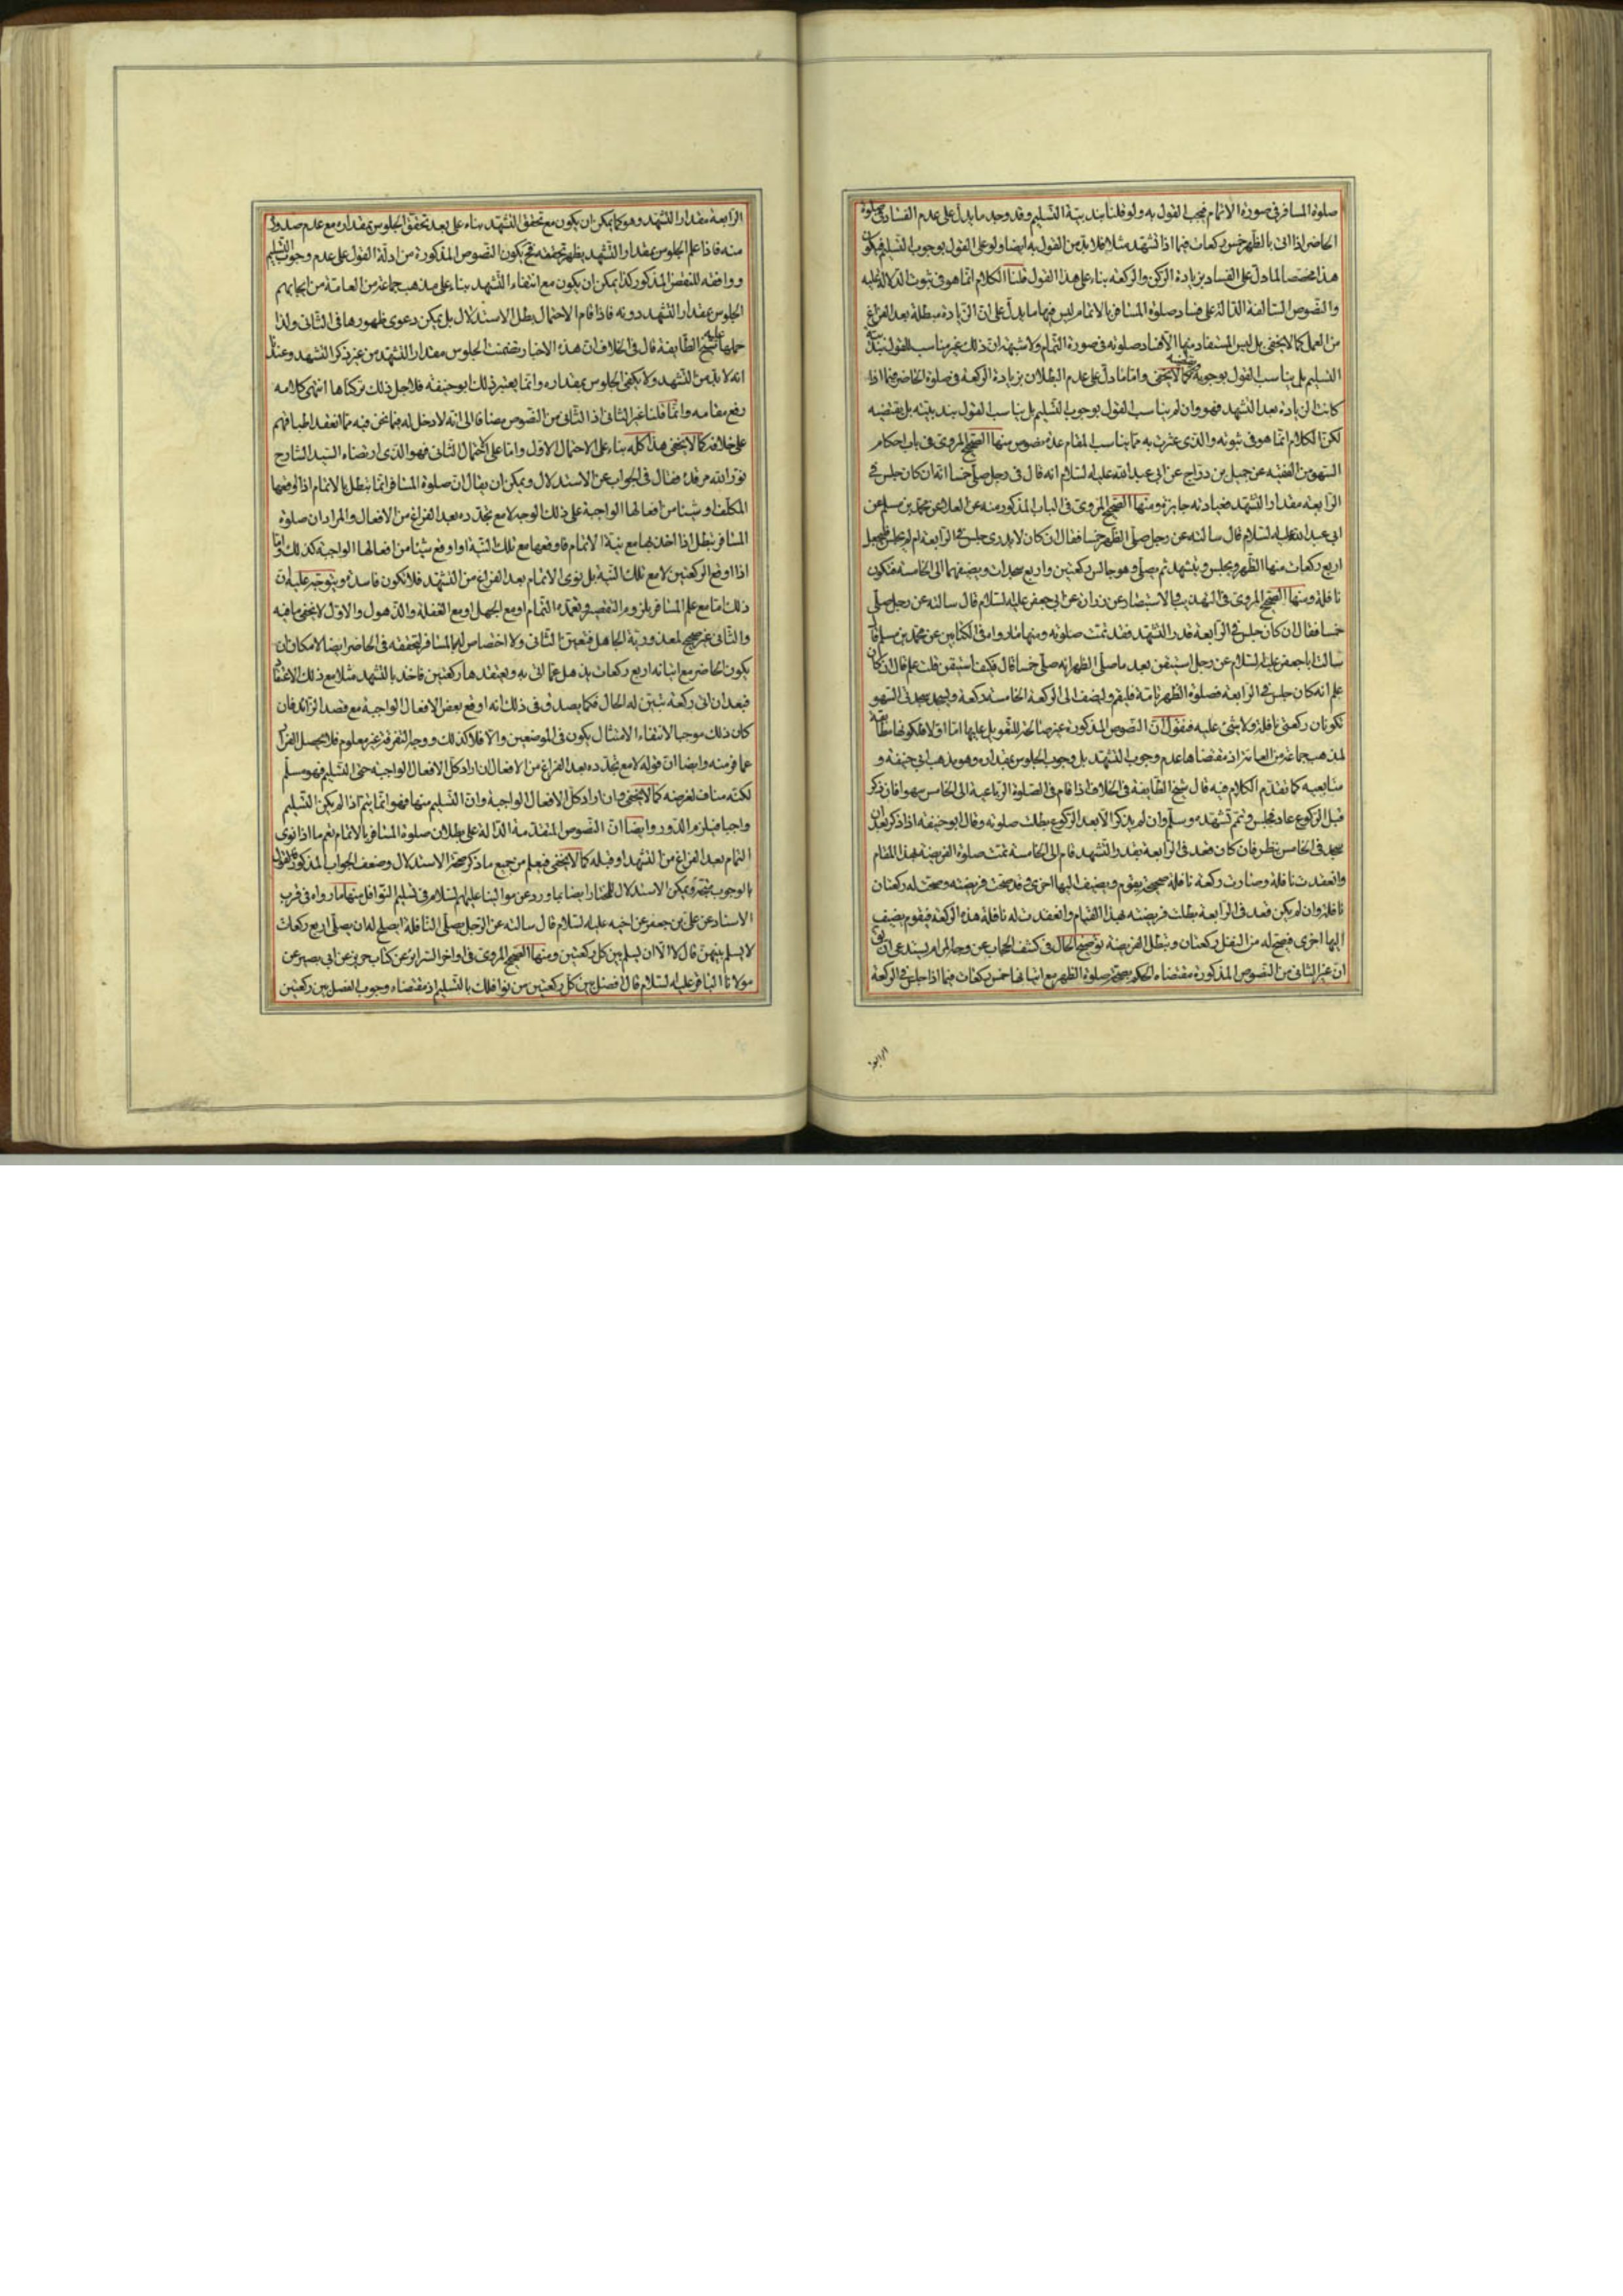 صلوة المسافر فى صورة الاتمام فيجب القول به ولو قلنا بندبية التسليم وقد وجد ما يدل على عدم الفساد فى صلوة
الحاضر اذا اتى بالظهر خمس ركعات فيما اذا تشهد مثلا فلا بد من القول به ايضا ولو على القول بوجوب التسليم فيكون
هذا مخصصا لما دل على الفساد بزيادة الركن والركعة بناء على هذا القول قلنا الكلام انما هو فى ثبوت الدلالة عليه
والنصوص السالفة الدالة على فساد صلوة المسافر بالاتمام ليس فيها ما يدل على ان الزيادة مبطلة بعد الفراغ
من العمل كما لا يخفى بل ليس المستفاد منها الا فساد صلوته فى صورة التمام ولا شبهة ان ذلك غير مناسب للقول بندبية
التسليم بل يناسب القول بوجوبه كما لا يخفى واما ما دل على عدم البطلان بزيادة الركعة فى صلوة الحاضر فيما اذا
كانت الزيادة بعد التشهد فهو وان لم يناسب القول بوجوب التسليم بل يناسب القول بندبيته بل يقتضيه
لكن الكلام انما هو فى ثبوته والذى عثرت به مما يناسب المقام عدة نصوص منها الصحيح المروى فى باب احكام
السهو من الفقيه عن جميل بن دراج عن ابى عبد الله عليه السلام انه قال فى رجل صلى خمسا انه ان كان جلس فى
الرابعة مقدار التشهد فعبادته جايزة ومنها الصحيح المروى فى الباب المذكور منه عن العلا عن محمد بن مسلم عن
ابى عبد الله عليه السلام قال سالته عن رجل صلى الظهر خمسا فقال ان كان لا يدرى جلس فى الرابعة ام لم يجلس فليجعل
اربع ركعات منها الظهر ويجلس ويتشهد ثم يصلى وهو جالس ركعتين واربع سجدات ويضيفهما الى الخامسة فتكون
نافلة ومنها الصحيح المروى فى التهذيب والاستبصار عن زرارة عن ابى جعفر عليه السلام قال سالته عن رجل صلى
خمسا فقال ان كان جلس فى الرابعة قدر التشهد فقد تمت صلوته ومنها ما رواه فى الكتابين عن محمد بن مسلم قال
سالت ابا جعفر عليه السلام عن رجل استيقن بعد ما صلى الظهر انه صلى خمسا قال فكيف استيقن قلت علم قال ان كان
علم انه كان جلس فى الرابعة فصلوة الظهر تامة فليقم وليضف الى الركعة الخامسة ركعة وليسجد سجدتى السهو
تكونان ركعتى نافلة ولا شئ عليه فنقول ان النصوص المذكورة غير صالحة للتعويل عليها اما اولا فلكونها مطابقة
لمذهب جماعة من العامة اذ مقتضاها عدم وجوب التشهد بل وجوب الجلوس بمقداره وهو مذهب ابى حنيفة و
متابعيه كما تقدم الكلام فيه قال شيخ الطايفة فى الخلاف اذا قام فى الصلوة الرباعية الى الخامس سهوا فان ذكر
قبل الركوع عاد فجلس وتمم تشهده وسلم وان لم يذكر الا بعد الركوع بطلت صلوته وقال ابو حنيفة اذا ذكر بعد ان
سجد فى الخامس نظر فان كان قعد فى الرابعة بقدر التشهد فقام الى الخامسة تمت صلوة الفريضة بهذا المقام
وانعقدت نافلة وصارت ركعة نافلة صحيحة يقوم ويضيف اليها اخرى وقد صحت فريضته وصحت له ركعتان
نافلة وان لم يكن قعد فى الرابعة بطلت فريضته بهذا القيام وانعقدت له نافلة هذه الركعة فيقوم يضيف
اليها اخرى فيصح له من النفل ركعتان وتبطل الفريضة توضيح الحال فى كشف الحجاب عن وجه المرام يستدعى ان
ان غير الثانى من النصوص المذكورة مقتضاه الحكم بصحة صلوة الظهر مع اتيانها خمس ركعات فيما اذا جلس فى الركعة
الرابعة
الرابعة مقدار التشهد وهو كما يمكن ان يكون مع تحقق التشهد بناء على بعد تحقق الجلوس بمقداره مع عدم صدوره
منه فاذا علم الجلوس بمقدار التشهد يظهر تحققه فح يكون النصوص المذكورة من ادلة القول على عدم وجوب التسليم
ووافقه للنقض المذكور كذا يمكن ان يكون مع انتفاء التشهد بناء على مذهب جماعة من العامة من ايجابهم
الجلوس بمقدار التشهد دونه فاذا قام الاحتمال بطل الاستدلال بل يمكن دعوى ظهورها فى الثانى ولذا
حملها عليه شيخ الطايفة قال فى الخلاف ان هذه الاخبار تضمنت الجلوس مقدار التشهد من غير ذكر التشهد وعندنا
انه لا بد من التشهد ولا يكفى الجلوس بمقداره وانما يعتبر ذلك ابو حنيفة فلاجل ذلك تركناها انتهى كلامه
رفع مقامه وانما قلنا غير الثانى اذ الثانى من النصوص مضافا الى انه لا دخل له فيما نحن فيه مما انعقد اطباقهم
على خلافه كما لا يخفى هذا كله بناء على الاحتمال الاول واما على الاحتمال الثانى فهو الذى ارتضاه السيد الشارح
نور الله مرقده فقال فى الجواب عن الاستدلال ويمكن ان يقال ان صلوة المسافر انما تبطل بالاتمام اذا اوقعها
المكلف او شيئا من افعالها الواجبة على ذلك الوجه لا مع تجدده بعد الفراغ من الافعال والمراد ان صلوة
المسافر تبطل اذا اخذ بها مع نية الاتمام فاوقعها مع تلك النية او اوقع شيئا من افعالها الواجبة كذلك واما
اذا اوقع الركعتين لا مع تلك النية بل نوى الاتمام بعد الفراغ من التشهد فلا تكون فاسدة ويتوجه عليه ان
ذلك اما مع علم المسافر بلزوم التقصير وتعمده التمام او مع الجهل او مع الغفلة والذهول والاول لا يخفى ما فيه
والثانى غير صحيح لمعذورية الجاهل فتعين الثانى ولا اختصاص له بالمسافر لتحققه فى الحاضر ايضا لامكان ان
يكون الحاضر مع اتيانه اربع ركعات يذهل عما اتى به ويعتقدها ركعتين فاخذ بالتشهد مثلا مع ذلك الاعتقاد
فبعد ان اتى ركعة تبين له الحال فكما يصدق فى ذلك انه اوقع بعض الافعال الواجبة مع قصد الزائد فان
كان ذلك موجبا لانتفاء الامتثال يكون فى الموضعين والا فلا كذلك ووجه التفرقة غير معلوم فلا يحصل الفرار
عما فر منه وايضا ان قوله لا مع تجدده بعد الفراغ من الافعال ان اراد كل الافعال الواجبة حتى التسليم فهو مسلم
لكنه مناف لغرضه كما لا يخفى وان اراد كل الافعال الواجبة وان التسليم منها فهو انما يتم اذا لم يكن التسليم
واجبا فيلزم الدور وايضا ان النصوص المتقدمة الدالة على بطلان صلوة المسافر بالاتمام تعم ما اذا نوى
التمام بعد الفراغ من التشهد او قبله كما لا يخفى فيعلم من جميع ما ذكر صحة الاستدلال وضعف الجواب المذكور على القول
بالوجوب ويمكن الاستدلال للمختار ايضا بما ورد عن موالينا عليهم السلام فى تسليم النوافل منها ما رواه فى قرب
الاسناد عن على بن جعفر عن اخيه عليه السلام قال سالته عن الرجل يصلى النافلة ايصلح له ان يصلى اربع ركعات
لا يسلم بينهن قال لا الا ان يسلم بين كل ركعتين ومنها الصحيح المروى فى اواخر السراير عن كتاب حريز عن ابى بصير عن
مولانا الباقر عليه السلام قال افصل بين كل ركعتين من نوافلك بالتسليم اذ مقتضاه وجوب الفصل بين ركعتين